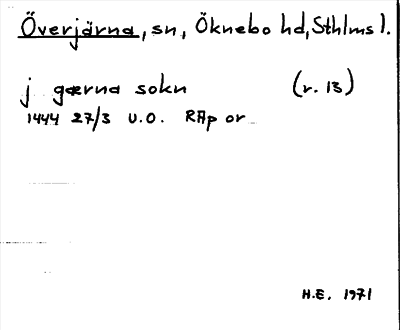 Överjärna, sn, Öknebo hd, Sthlms l.
j gærna sokn (r. 13)
1444 27/3 U.O. RAp or
H.E. 1971